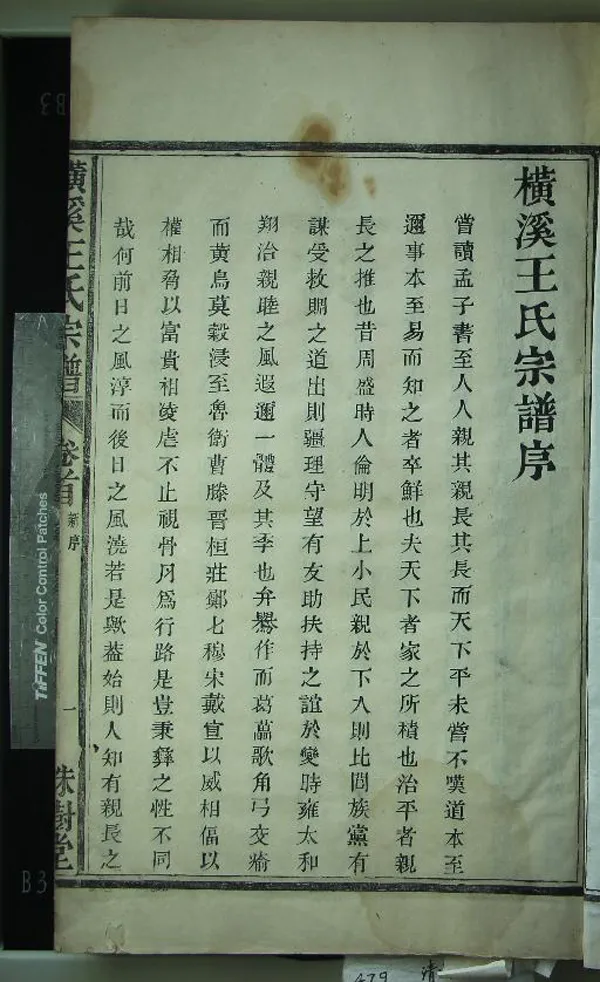 橫溪王氏宗譜序
嘗讀孟子書至人人親其親長其長而天下平未嘗不嘆道本至
邇事本至易而知之者卒鮮也夫天下者家之所積也治平者親
長之推也昔周盛時人倫明於上小民親於下入則比閭族黨有
謀受救賙之道出則疆理守望有友助扶持之誼於變時雍太和
翔洽親睦之風遐邇一體及其季也弁鸒作而葛藟歌角弓交瘉
而黃鳥莫穀浸至魯衛曹滕晋桓莊鄭七穆宋戴宣以威相偪以
權相脅以富貴相淩虐不止視骨肉爲行路是豈秉彝之性不同
哉何前日之風淳而後日之風澆若是歟葢始則人知有親長之
橫溪王氏宗譜
卷首
新序
一
珠樹堂
TIFFEN Color Control Patches
B3
B3
479
清